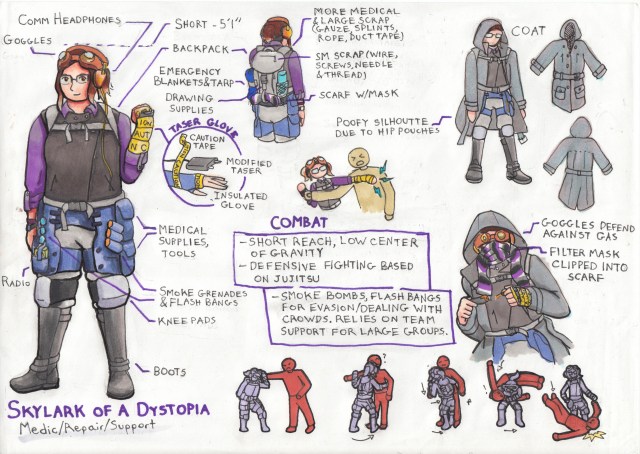 COMM HEADPHONES
GOGGLES
SHORT - 5'1"
BACKPACK
EMERGENCY
BLANKETS & TARP
DRAWING
SUPPLIES
MORE MEDICAL
& LARGE SCRAP
(GAUZE, SPLINTS,
ROPE, DUCT TAPE)
SM SCRAP (WIRE,
SCREWS, NEEDLE
& THREAD)
SCARF W/MASK
COAT
POOFY SILHOUTTE
DUE TO HIP POUCHES
TASER GLOVE
CAUTION
TAPE
MODIFIED
TASER
INSULATED
GLOVE
IGN
AUT
NC
MEDICAL
SUPPLIES,
TOOLS
RADIO
SMOKE GRENADES
& FLASH BANGS
KNEE PADS
BOOTS
COMBAT
- SHORT REACH, LOW CENTER
OF GRAVITY
- DEFENSIVE FIGHTING BASED
ON JUJITSU
- SMOKE BOMBS, FLASH BANGS
FOR EVASION/DEALING WITH
CROWDS. RELIES ON TEAM
SUPPORT FOR LARGE GROUPS.
GOGGLES DEFEND
AGAINST GAS
FILTER MASK
CLIPPED INTO
SCARF
SKYLARK OF A DYSTOPIA
Medic/Repair/Support
?
!